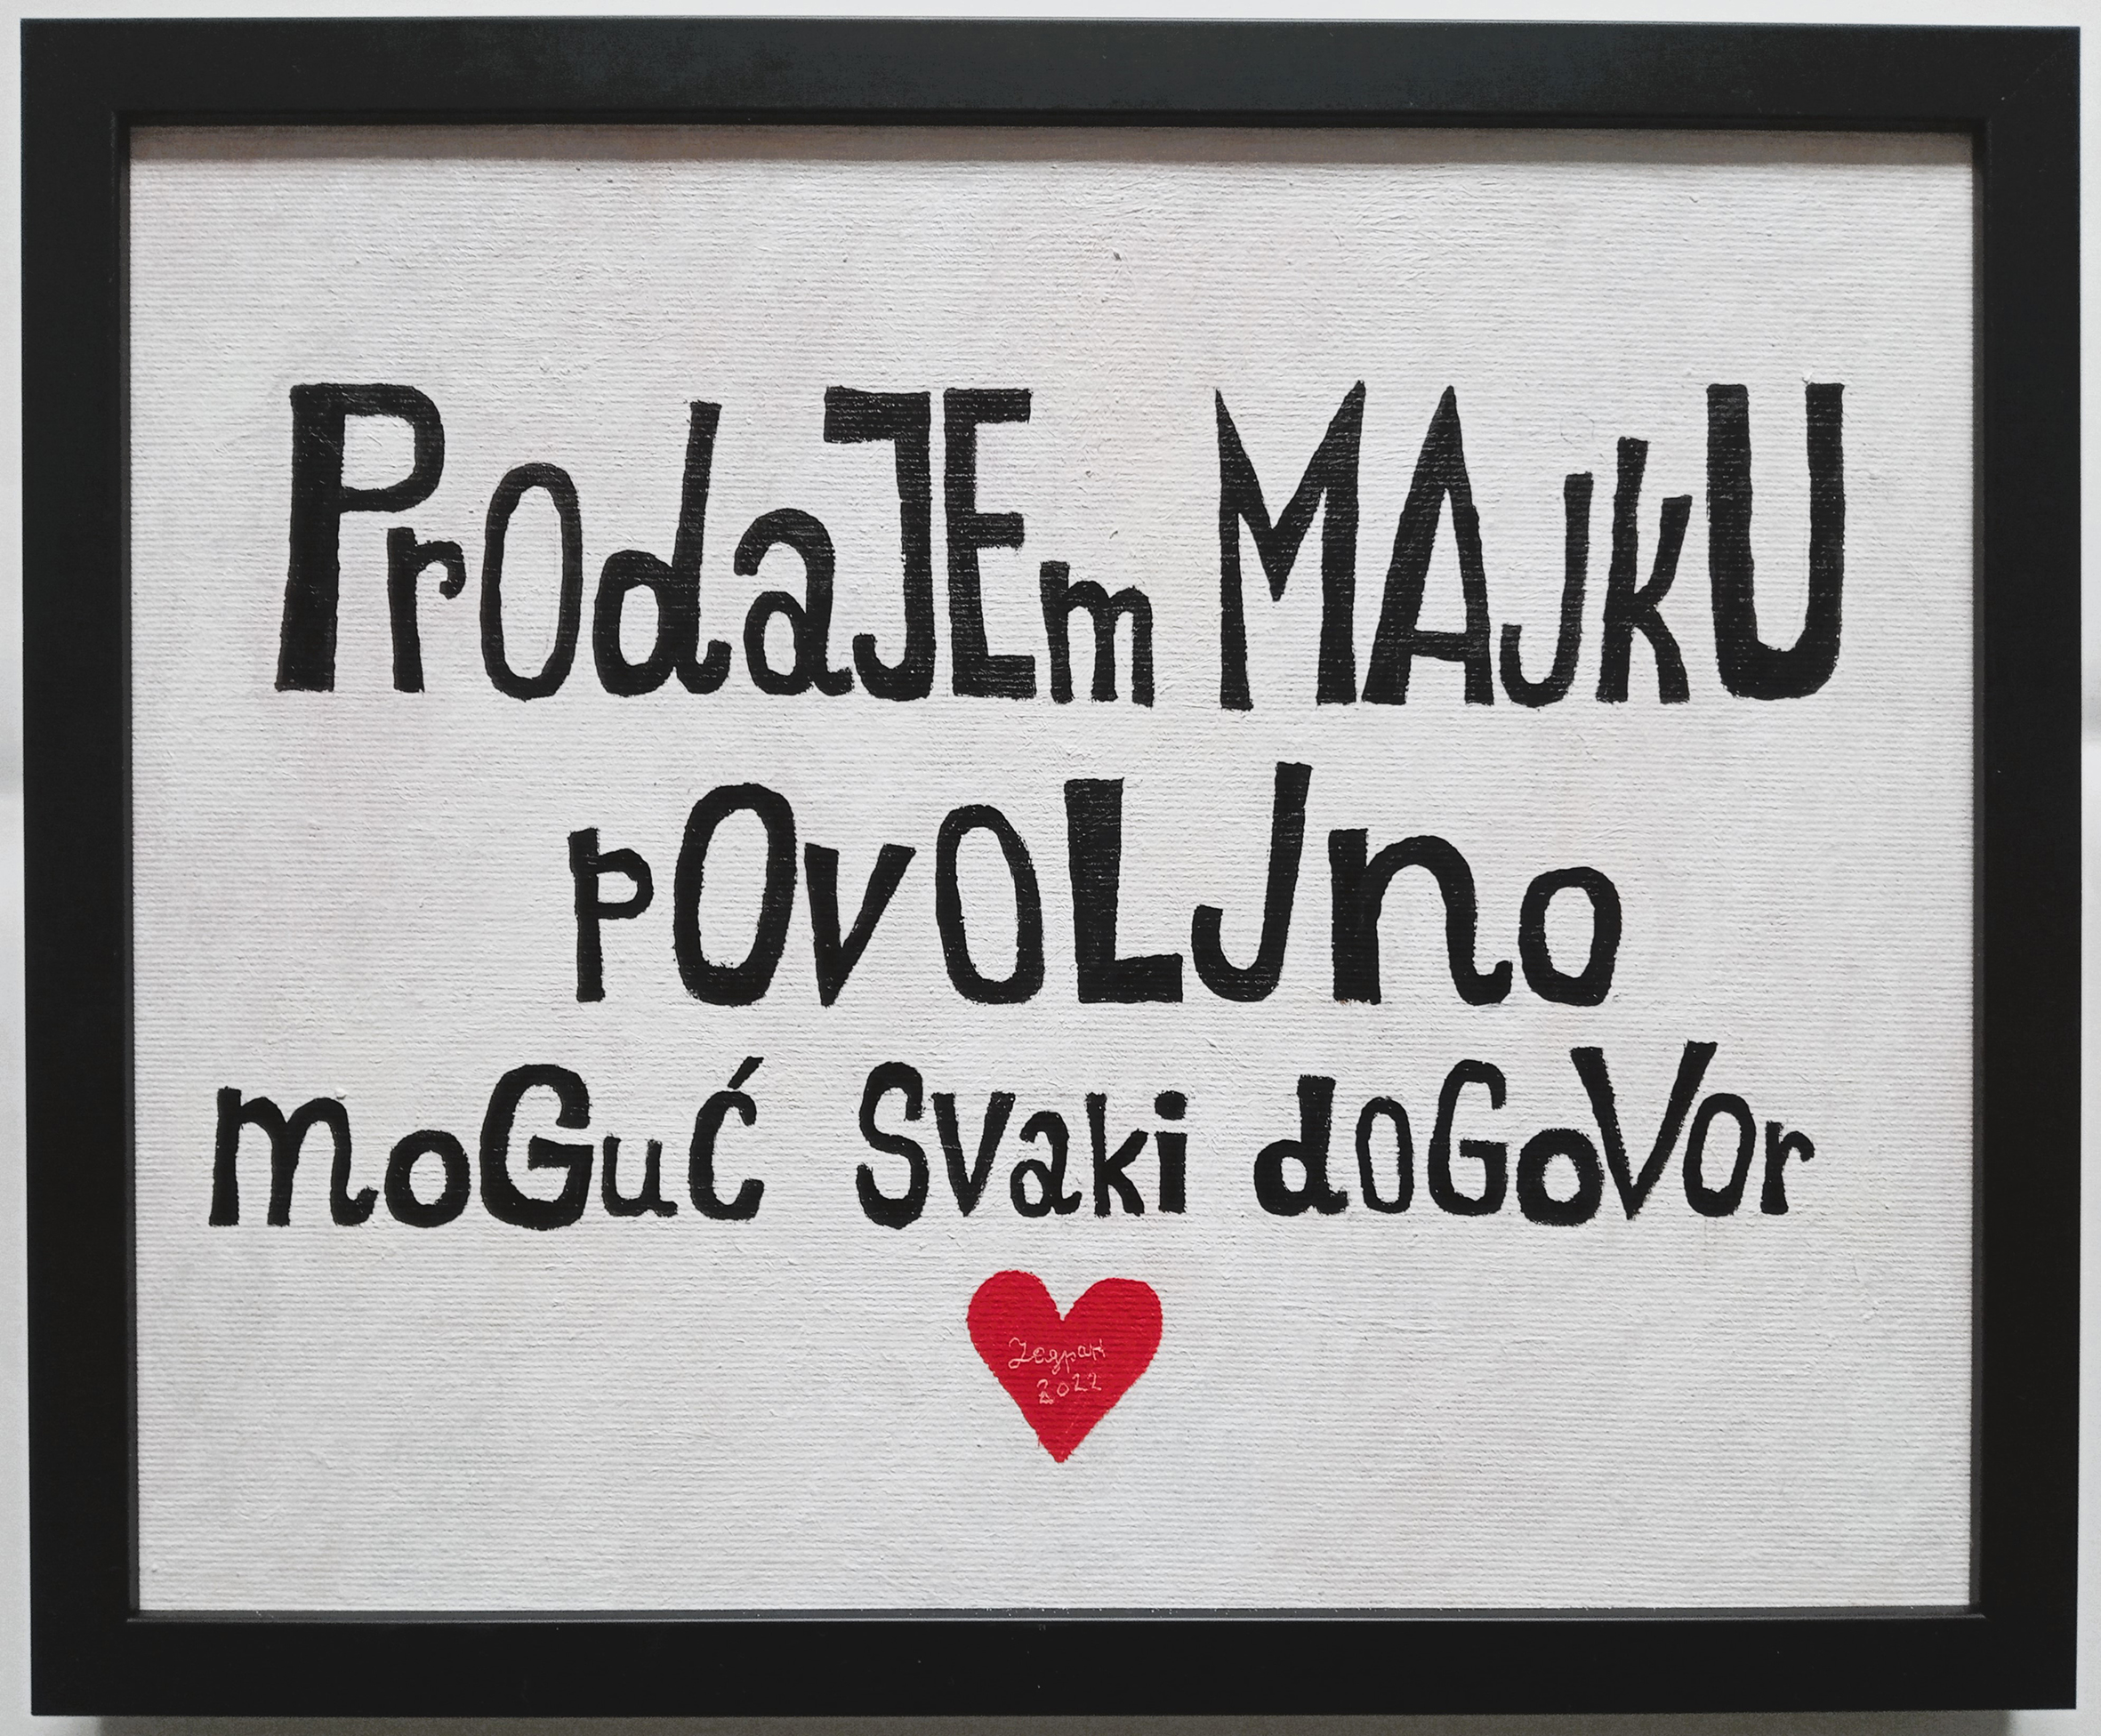 ProdaJEm MAJkU
POvOLJno
moGuĆ Svaki doGoVor
2022